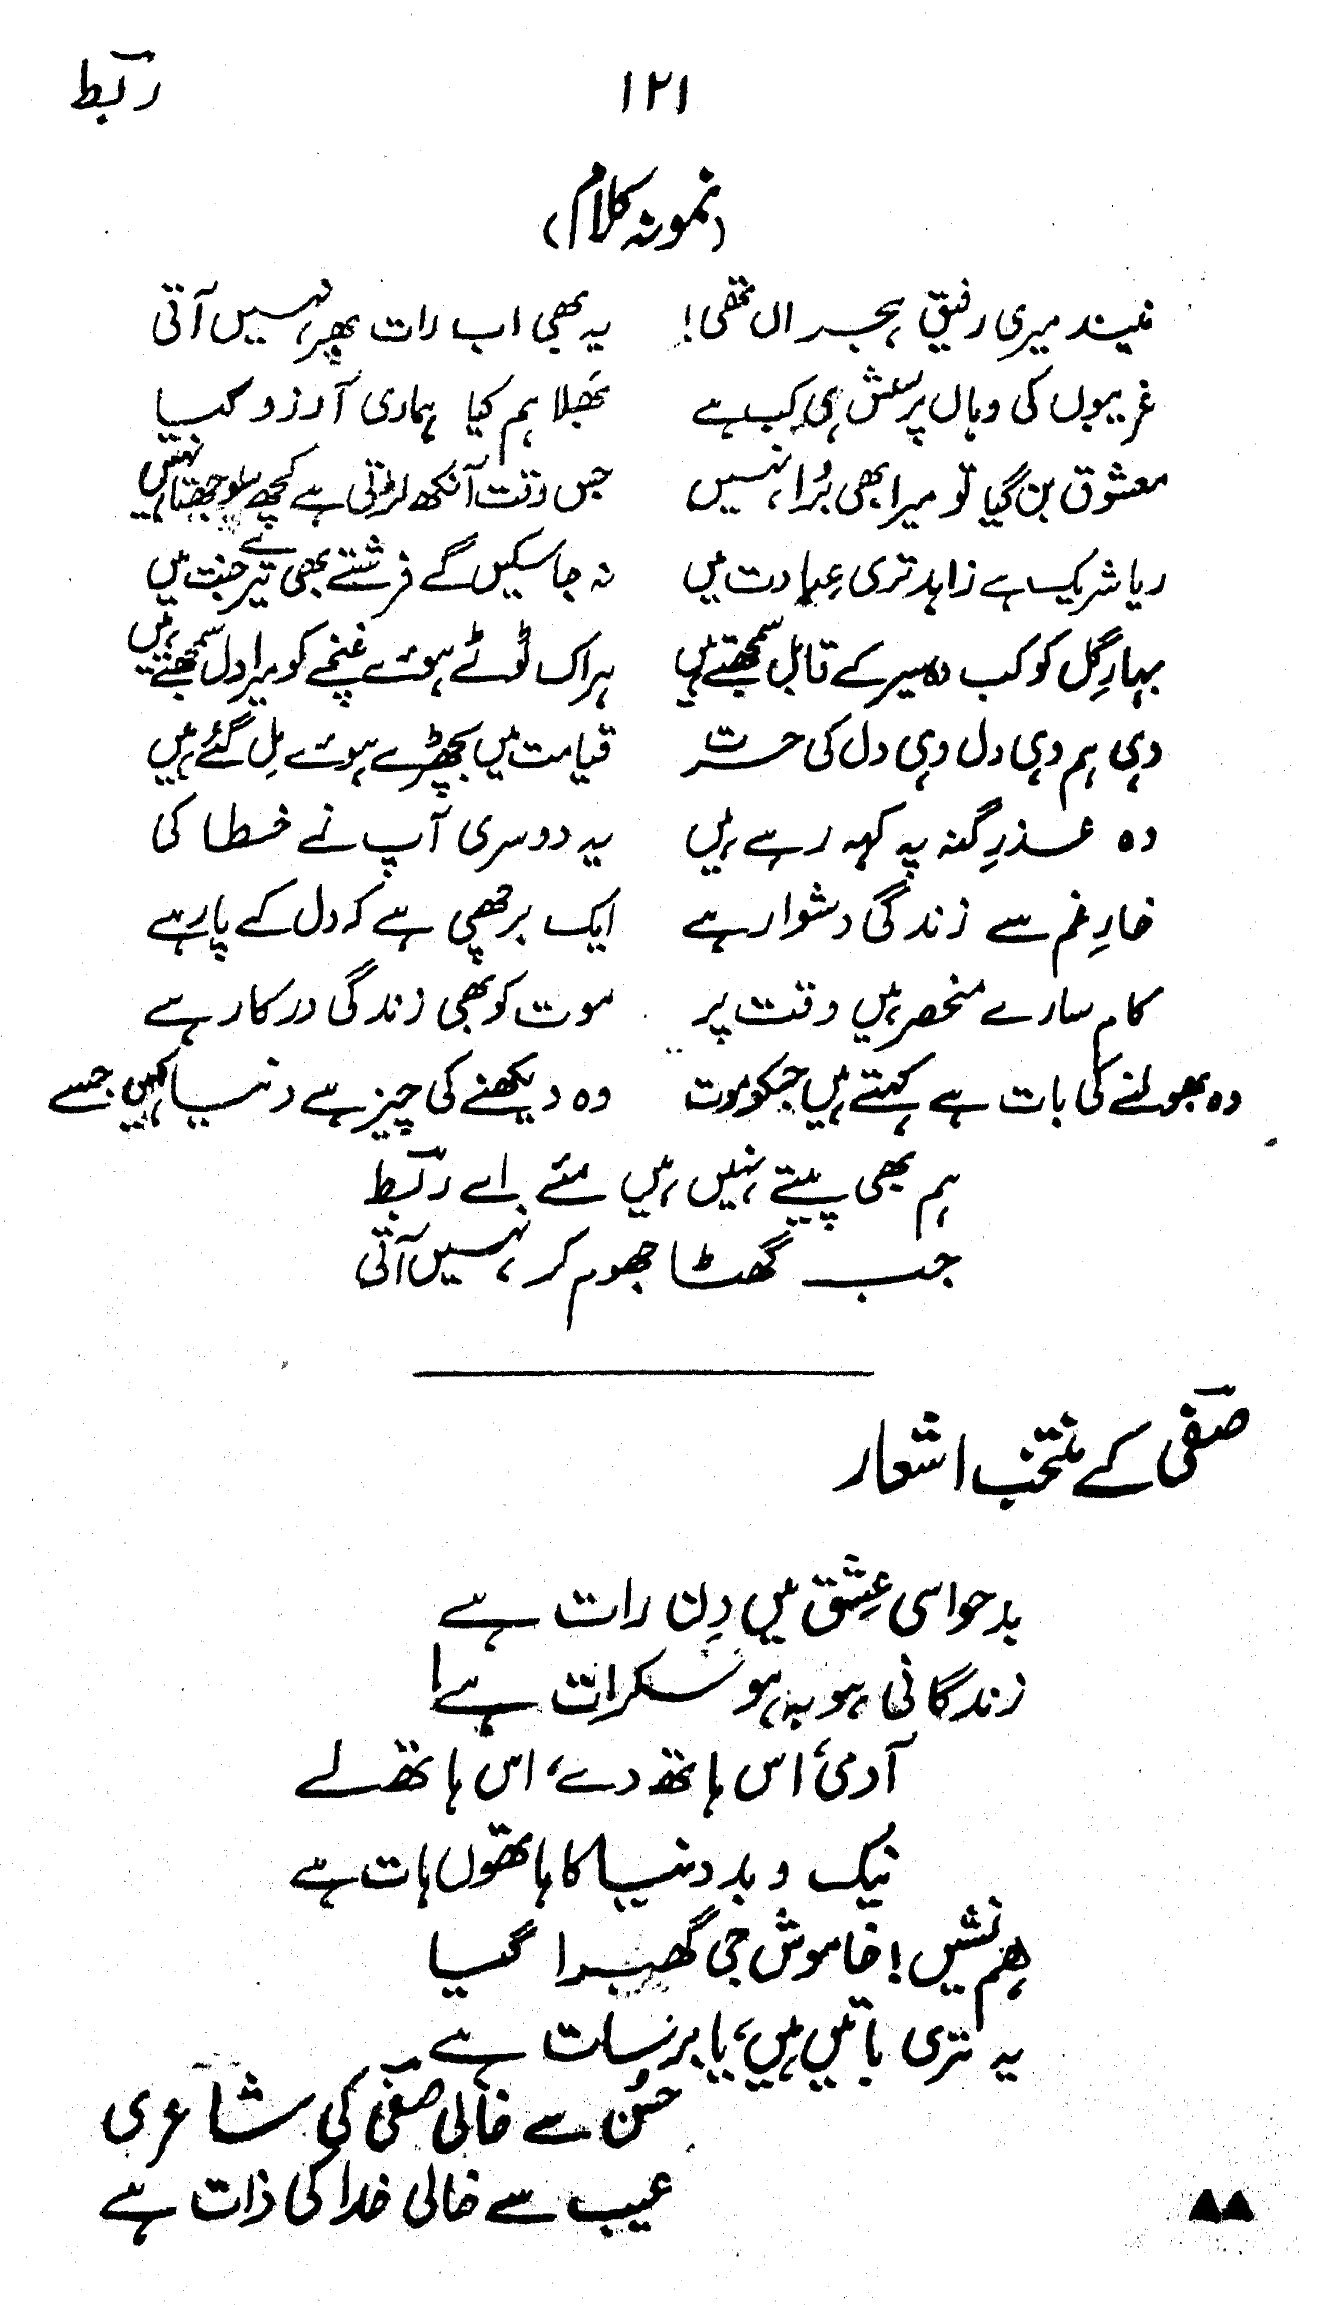 ربطؔ
۱۲۱
(نمونہ کلام)
نیند میری رفیقِ ہجراں تھی! یہ بھی اب رات بھر نہیں آتی
غریبوں کی وہاں پرسش ہی کب ہے بھلا ہم کیا ہماری آرزو کیا
معشوق بن گیا تو میرا بھی بُرا نہیں جس وقت آنکھ لڑتی ہے کچھ سوجھتا نہیں
ریا شریک ہے زاہد تری عبادت میں نہ جا سکیں گے فرشتے بھی تیرے جنت میں
بہارِ گل کو کب وہ سیر کے قابل سمجھتے ہیں ہر اک ٹوٹے ہوئے غنچے کو میرا دل سمجھتے ہیں
وہی ہم وہی دل وہی دل کی حسرت قیامت میں بچھڑے ہوئے مل گئے ہیں
وہ عذرِ گنہ پہ کہہ رہے ہیں یہ دوسری آپ نے خطا کی
خارِ غم سے زندگی دشوار ہے ایک برچھی ہے کہ دل کے پار ہے
کام سارے منحصر ہیں وقت پر موت کو بھی زندگی درکار ہے
وہ بھولنے کی بات ہے کہتے ہیں جسکو موت وہ دیکھنے کی چیز ہے دنیا کہیں جسے
ہم بھی پیتے نہیں ہیں مئے اے ربطؔ
جب گھٹا جھوم کر نہیں آتی
صفیؔ کے منتخب اشعار
بدحواسی عِشق میں دِن رات ہے
زندگانی ہو بہ ہو سکرات ہے!
آدمی، اس ہاتھ دے، اس ہاتھ لے
نیک و بد دنیا کا ہاتھوں ہات ہے
ہم نشیں! خاموش جی گھبرا گیا
یہ تری باتیں ہیں، یا برسات ہے
حُسن سے خالی صفیؔ کی شاعری
عیب سے خالی خدا کی ذات ہے